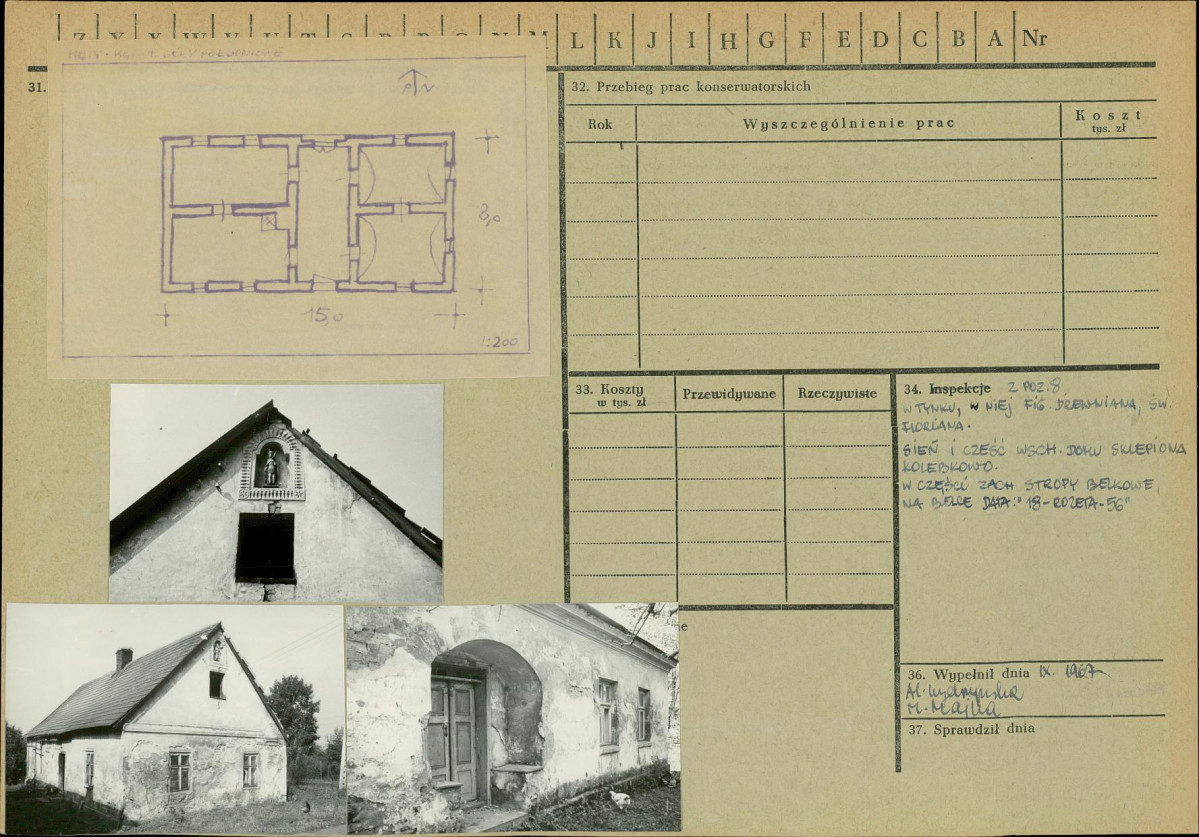 L K J I H G F E D C B A Nr
31.
N
8,0
15,0
1:200
32. Przebieg prac konserwatorskich
Rok
Wyszczególnienie prac
Koszt
tys. zł
33. Koszty
w tys. zł
Przewidywane
Rzeczywiste
34. Inspekcje Z POZ. 8
W TYNKU, W NIEJ FIG. DREWNIANA, ŚW.
FLORIANA.
SIEŃ I CZĘŚĆ WSCH. DOMU SKLEPIONA
KOLEBKOWO.
W CZĘŚCI ZACH STROPY BELKOWE,
NA BELCE DATA: "18-ROZETA-56"
e
36. Wypełnił dnia IX. 1967
37. Sprawdził dnia